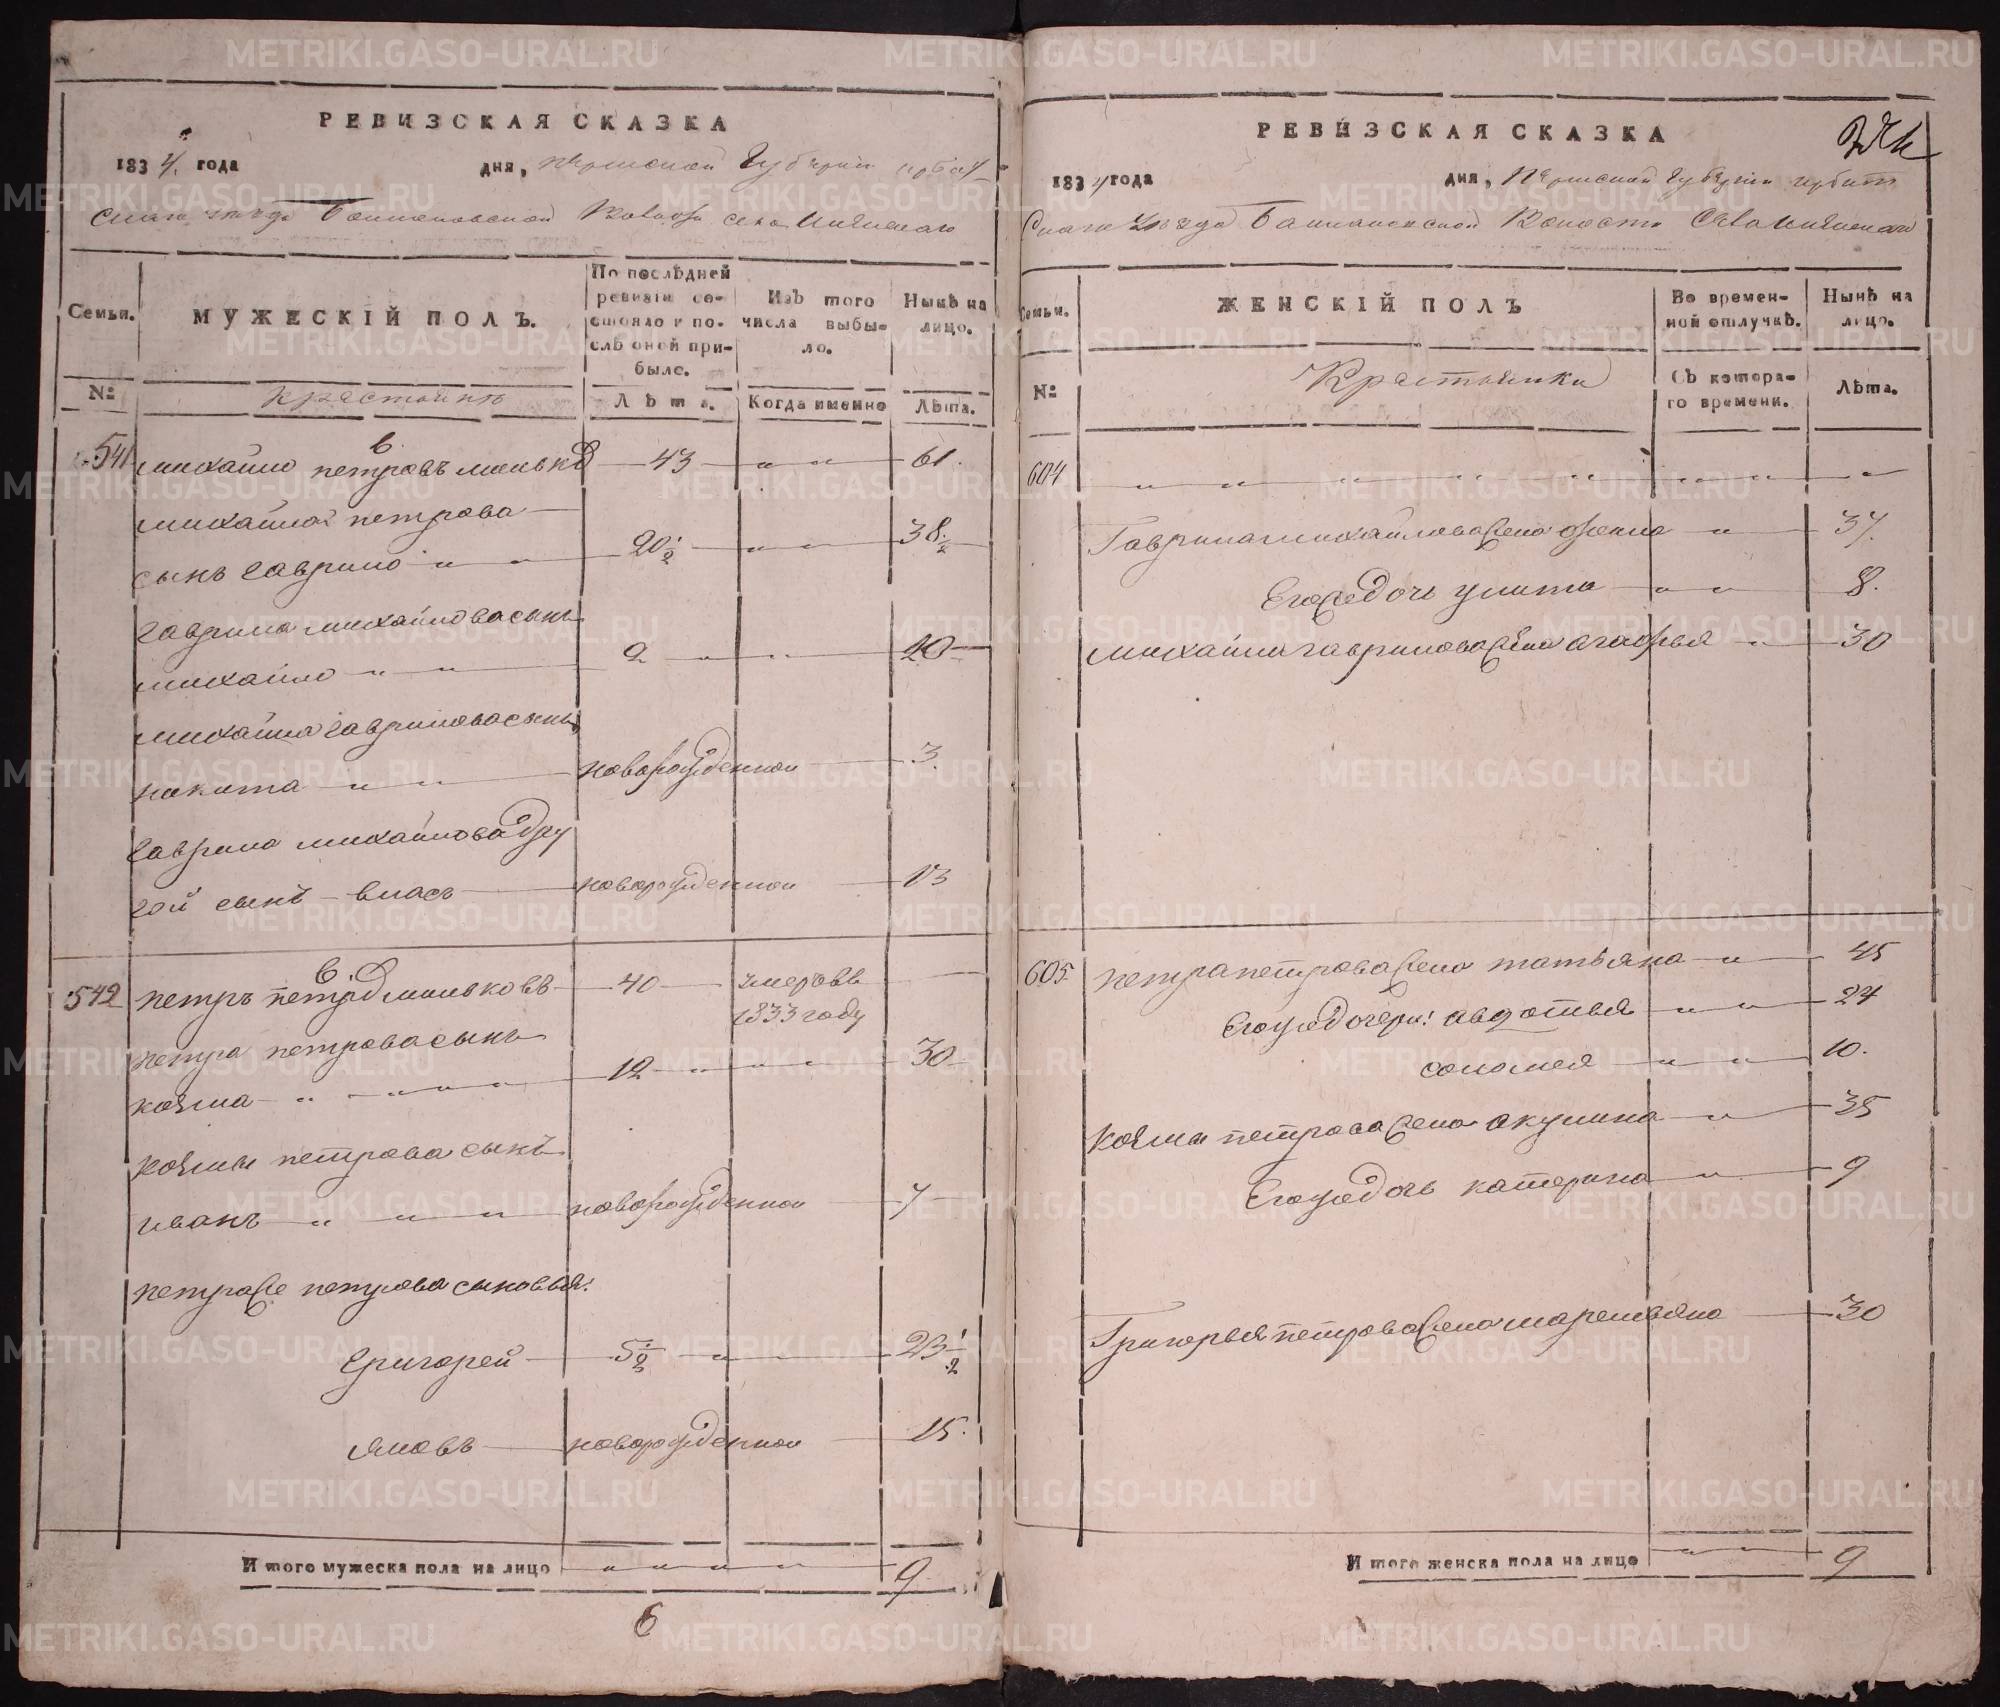 РЕВИЗСКАЯ СКАЗКА
1834 года дня, Пермской Губернии Ирбит
скаго уезда Башмаковской Волости села
Семьи.
МУЖЕСКІЙ ПОЛЪ.
По послѣдней
ревизіи со-
стояло и по-
слѣ оной при-
было.
Изъ того
числа выбы-
ло.
Нынѣ на
лицо.
№
Крестьяне
Лѣта.
Когда именно
Лѣта.
541 михайло петровъ 43 " " 61.
михайла петрова
сынъ гаврило " " 20 1/2 " " 38 1/2
гаврила михайлова сынъ
михайло " " 2 " " 20
михайла гаврилова сынъ
никита " " новорожденной 3
гаврила михайлова дру
гой сынъ власъ новорожденной 13
542 петръ петровъ 40 умеръ въ
1833 году
петра петрова сынъ
козма " " " " 12 " " " 30
козмы петрова сынъ
иванъ " " " новорожденной 7
петра же петрова сыновья:
григорей 5 1/2 " 23 1/2
яковъ новорожденной 15.
И того мужеска пола на лицо " " " " 9
6
РЕВИЗСКАЯ СКАЗКА
1834 года дня, Пермской Губернии Ирбит
скаго уезда Башмаковской Волости Села
Семьи.
ЖЕНСКІЙ ПОЛЪ
Во времен-
ной отлучкѣ.
Нынѣ на
лицо.
№
Крестьянки
Съ котора-
го времени.
Лѣта.
604 " " " " " " " " "
Гаврила михайлова жена " 37.
Егоже дочь улита " " 8.
михайла гаврилова жена агафья " 30
605 петра петрова жена татьяна " 45
Егоже дочери: авдотья " " 24
соломея " " 10.
козмы петрова жена акулина " 35
Егоже дочь катерина " 9
Григорья петрова жена маремьяна 30
И того женска пола на лицо " " 9
METRIKI.GASO-URAL.RU